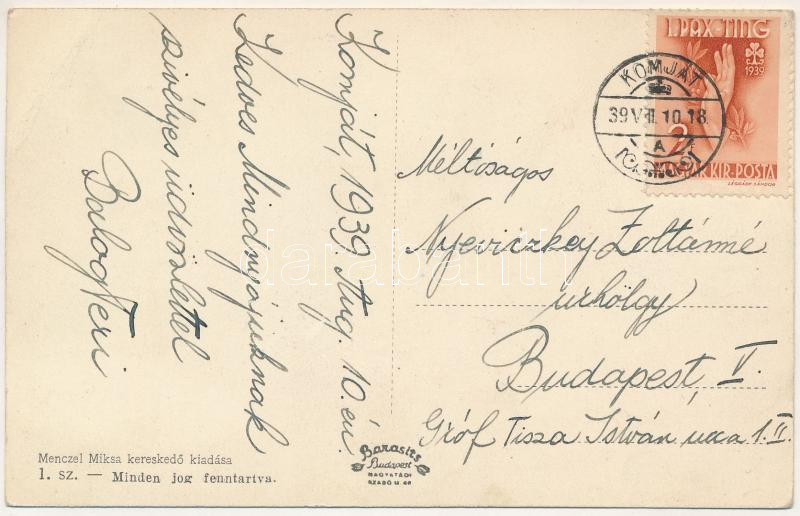 Komját, 1939. Aug. 10.-én
Kedves Mindnyájuknak
szivélyes üdvözlettel
Balog Feri
Menczel Miksa kereskedő kiadása
1. sz. — Minden jog fenntartva.
Barasits
Budapest
SZABÓ U. 46
I. PAX-TING
1939
2
MAGYAR KIR. POSTA
LÉGRÁDY SÁNDOR
KOMJÁT
39 VIII. 10. 18
A
Méltóságos
Nyeviczkey Zoltánné
urhölgy
Budapest, V.
Gróf Tisza István ucca 1. II.
darabanth